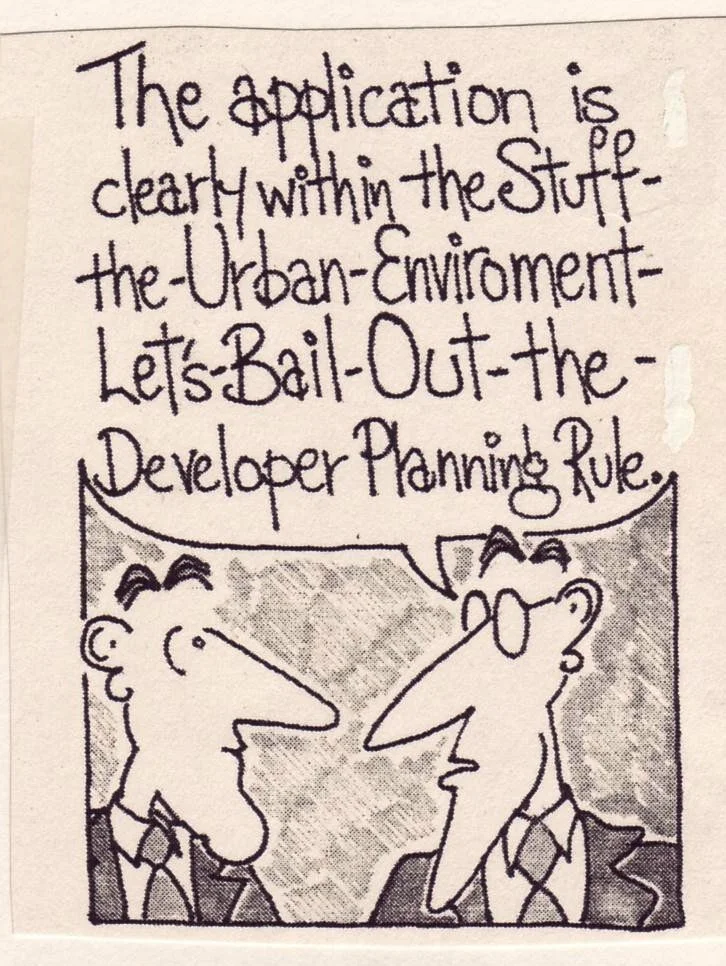 The application is
clearly within the Stuff-
the-Urban-Enviroment-
Let's-Bail-Out-the-
Developer Planning Rule.